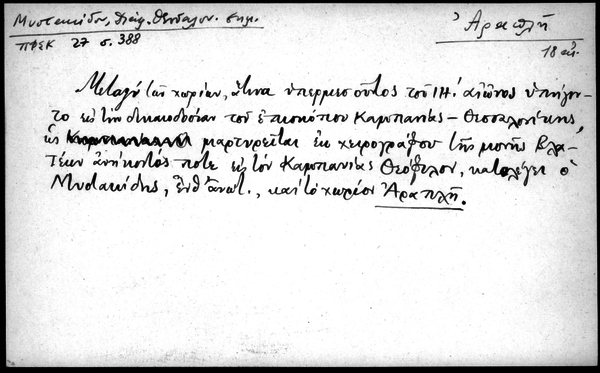 Μυστακίδου, Διάφ. Θεσσαλον. σημ.
ΠΦΣΚ 27 σ. 388
Ἀραπλῆ
18 αἰ.
Μεταξὺ τῶν χωρίων, ἅτινα ὑπερμεσοῦντος τοῦ ΙΗ΄ αἰῶνος ὑπήγον-
το εἰς τὴν δικαιοδοσίαν τοῦ ἐπισκόπου Καμπανίας – Θεσσαλονίκης,
ὡς μαρτυρεῖται ἐκ χειρογράφου τῆς μονῆς Βλα-
τέων ἀνήκοντός ποτε εἰς τὸν Καμπανίας Θεόφιλον, καταλέγει ὁ
Μυστακίδης, ἔνθ' ἀνωτ., καὶ τὸ χωρίον Ἀραπλῆ.